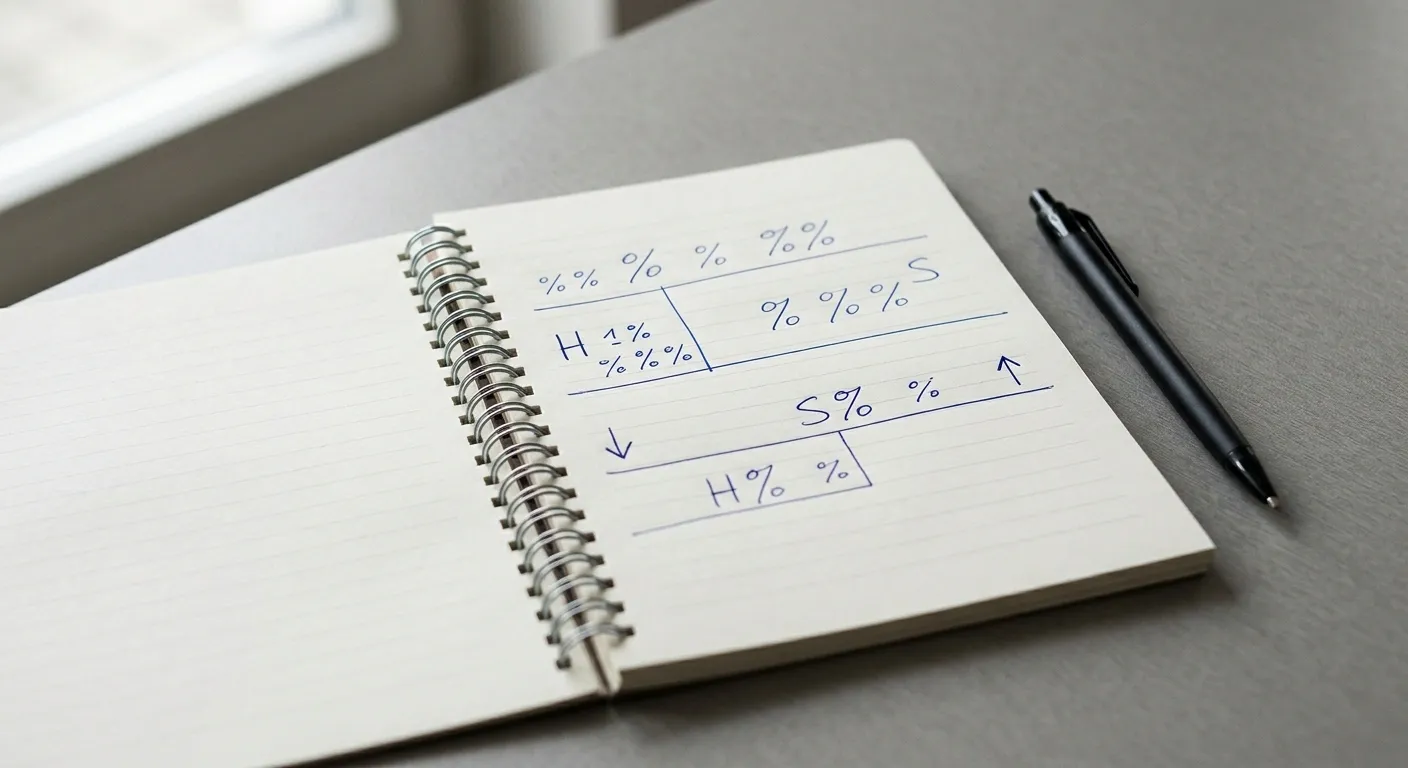 %% % % %%
H 1% % % % S
% % %
S% % ↑
↓
H% %